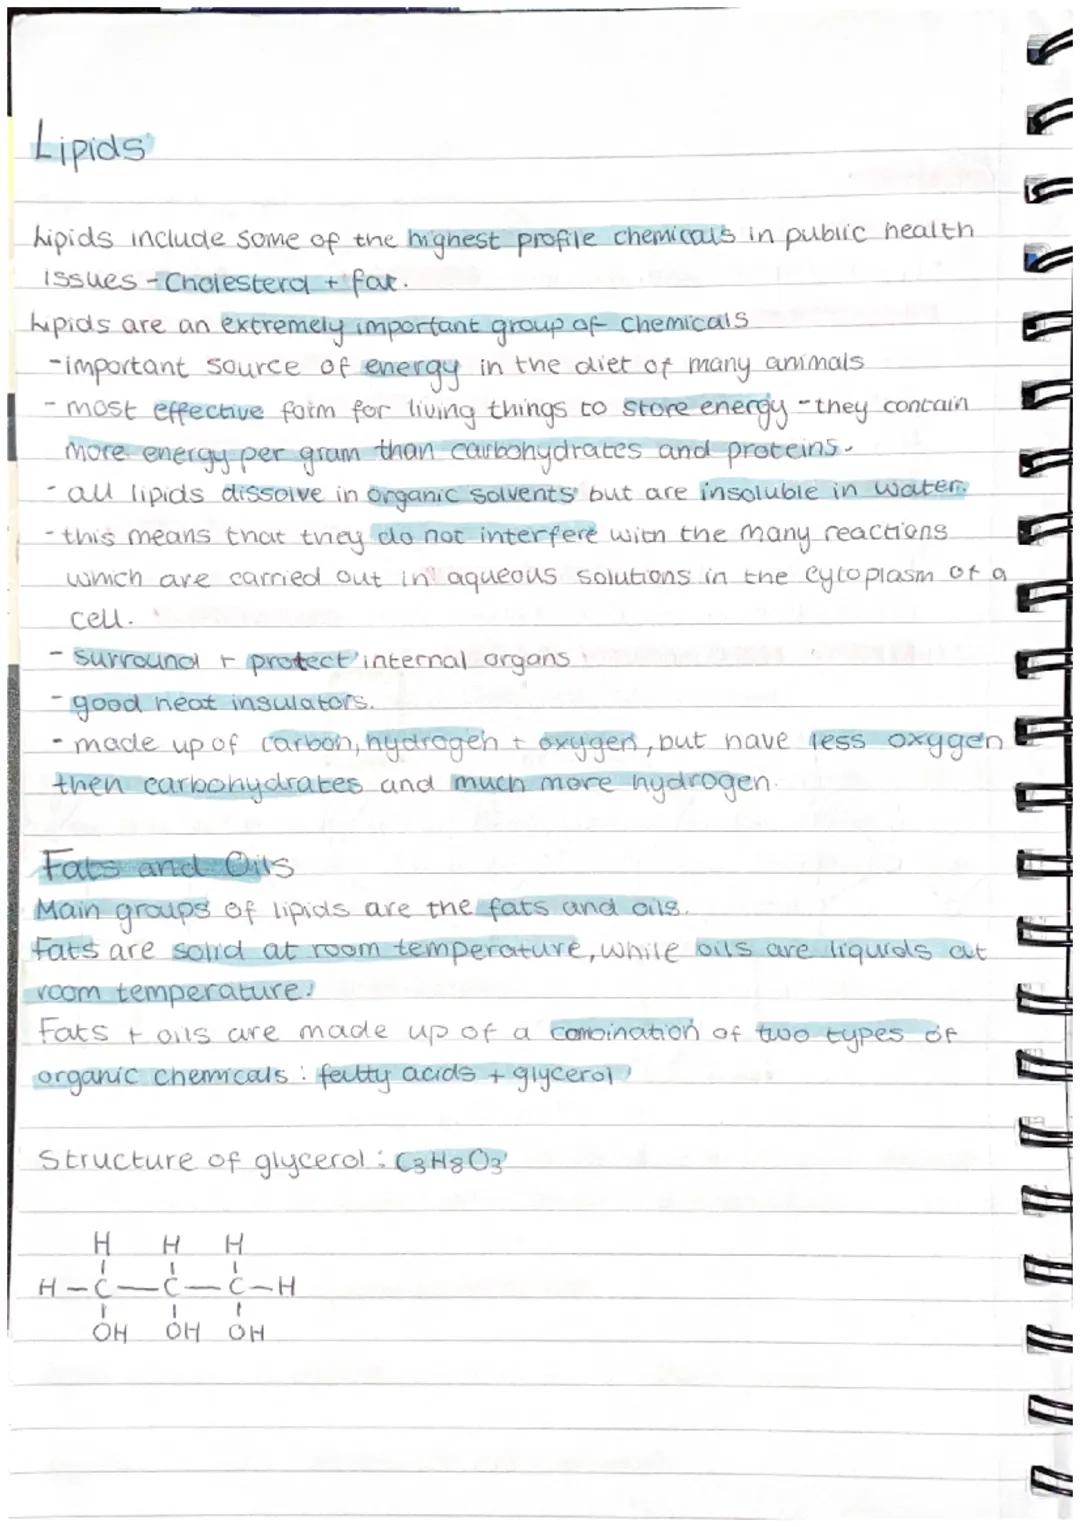 Lipids
Lipids include some of the highest profile chemicals in public health
issues - Cholesterol + fat.
Lipids are an extremely important group of chemicals
- important source of energy in the diet of many animals
- most effective form for living things to store energy - they contain
more energy per gram than carbohydrates and proteins.
- all lipids dissolve in organic solvents but are insoluble in water.
- this means that they do not interfere with the many reactions
which are carried out in aqueous solutions in the cytoplasm of a
cell.
- surround + protect internal organs
- good heat insulators.
- made up of carbon, hydrogen + oxygen, but have less oxygen
then carbohydrates and much more hydrogen.
Fats and Oils
Main groups of lipids are the fats and oils.
Fats are solid at room temperature, while oils are liquids at
room temperature.
Fats + oils are made up of a combination of two types of
organic chemicals : fatty acids + glycerol
Structure of glycerol : C3H8O3
H H H
H - C - C - C - H
OH OH OH